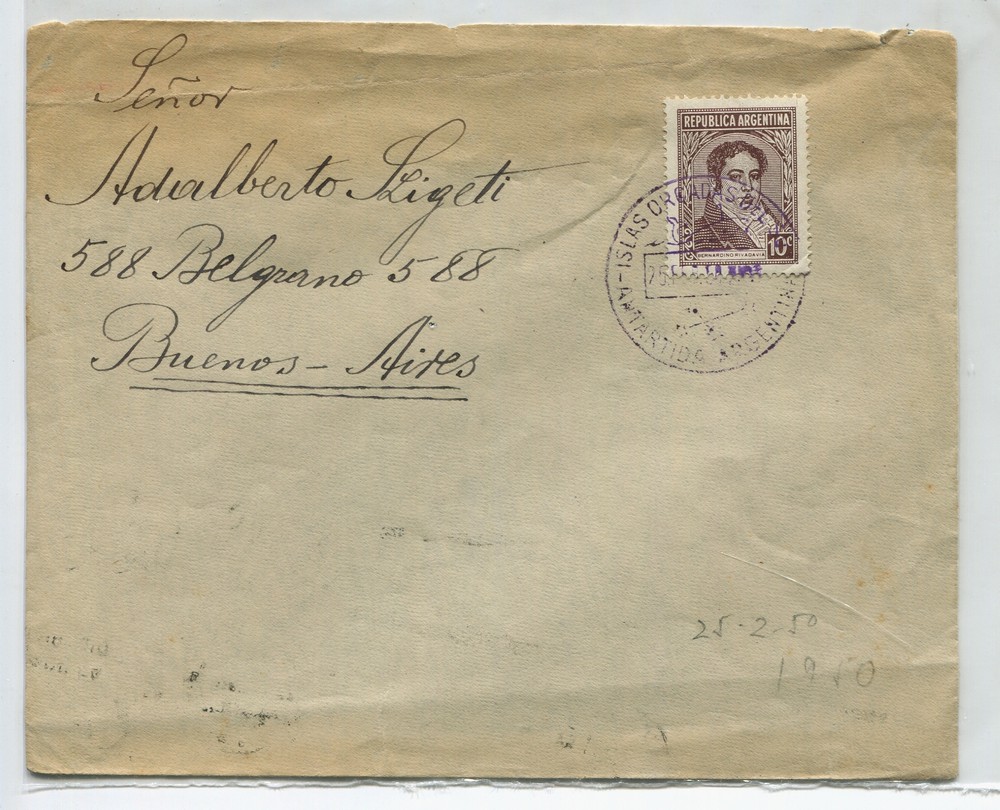 Señor
Adalberto Szigeti
588 Belgrano 588
Buenos - Aires
REPUBLICA ARGENTINA
10c
BERNARDINO RIVADAVIA
ISLAS ORCADAS DEL
ANTARTIDA ARGENTINA
25-2-50
1950